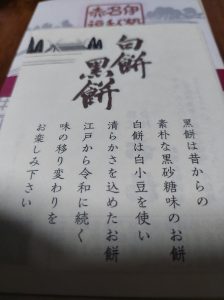 伊勢名物
赤福
白餅
黒餅
黒餅は昔からの
素朴な黒砂糖味のお餅
白餅は白小豆を使い
清らかさを込めたお餅
江戸から令和に続く
味の移り変わりを
お楽しみ下さい